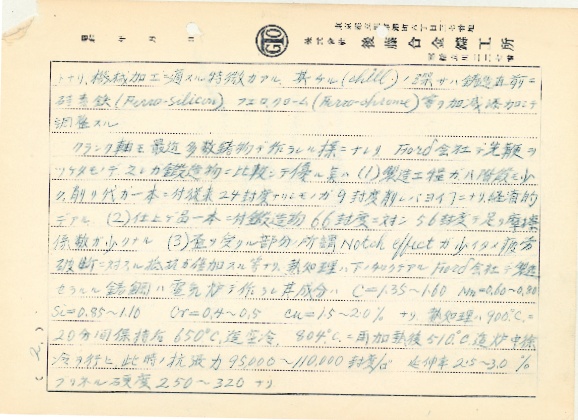 昭和 年 月 日
GTO
株式会社 後藤合金鑄工所
トナリ、機械加工ニ適スル特徴カアル、其チル(chill)ノ深サハ鑄造直前ニ
硅素鉄(Ferro-silicon)、フェロクローム(Ferro-chrome)等ヲ加減添加シテ
調整スル
クランク軸モ最近多数鑄物デ作ラレル様ニナレリ Ford会社デ先鞭ヲ
ツケタモノデスレカ鍛造物ニ比較シテ優ル点ハ (1)製造工程カ八階級ニ少
ク、削リ代カ一本ニ付従来24封度ナリシモノカ9封度削レバヨイ事ニナリ、経済的
デアル (2)仕上ゲ品一本ニ付鍛造物 66封度ニ対シ 56封度デ足リ摩擦
係数カ少クナル (3)歪ヲ受クル部分、所謂 Notch effect カ少イタメ疲労
破断ニ対スル抵抗カ倍加スル等ナリ、熱処理ハ下ノ如クデアル Ford会社デ製造
セラルル鑄鋼ハ電気炉デ作ラレ其成分ハ C=1.35~1.60 Mn=0.60~0.80
Si=0.85~1.10 Cr=0.4~0.5 Cu=1.5~2.0% ナリ 熱処理ハ900℃ニ
20分間保持后 650℃迄空冷、804℃ニ再加熱後 510℃迄炉中徐
冷ヲ行ヒ此時ノ抗張力 95,000~110,000封度/□" 延伸率 2.5~3.0%
ブリネル硬度 250~320 ナリ
(2)